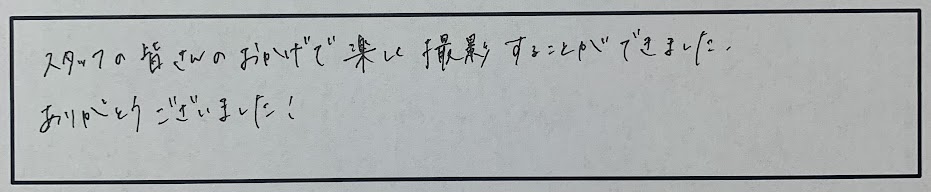 スタッフの皆さんのおかげで楽しく撮影することができました.
ありがとうございました!